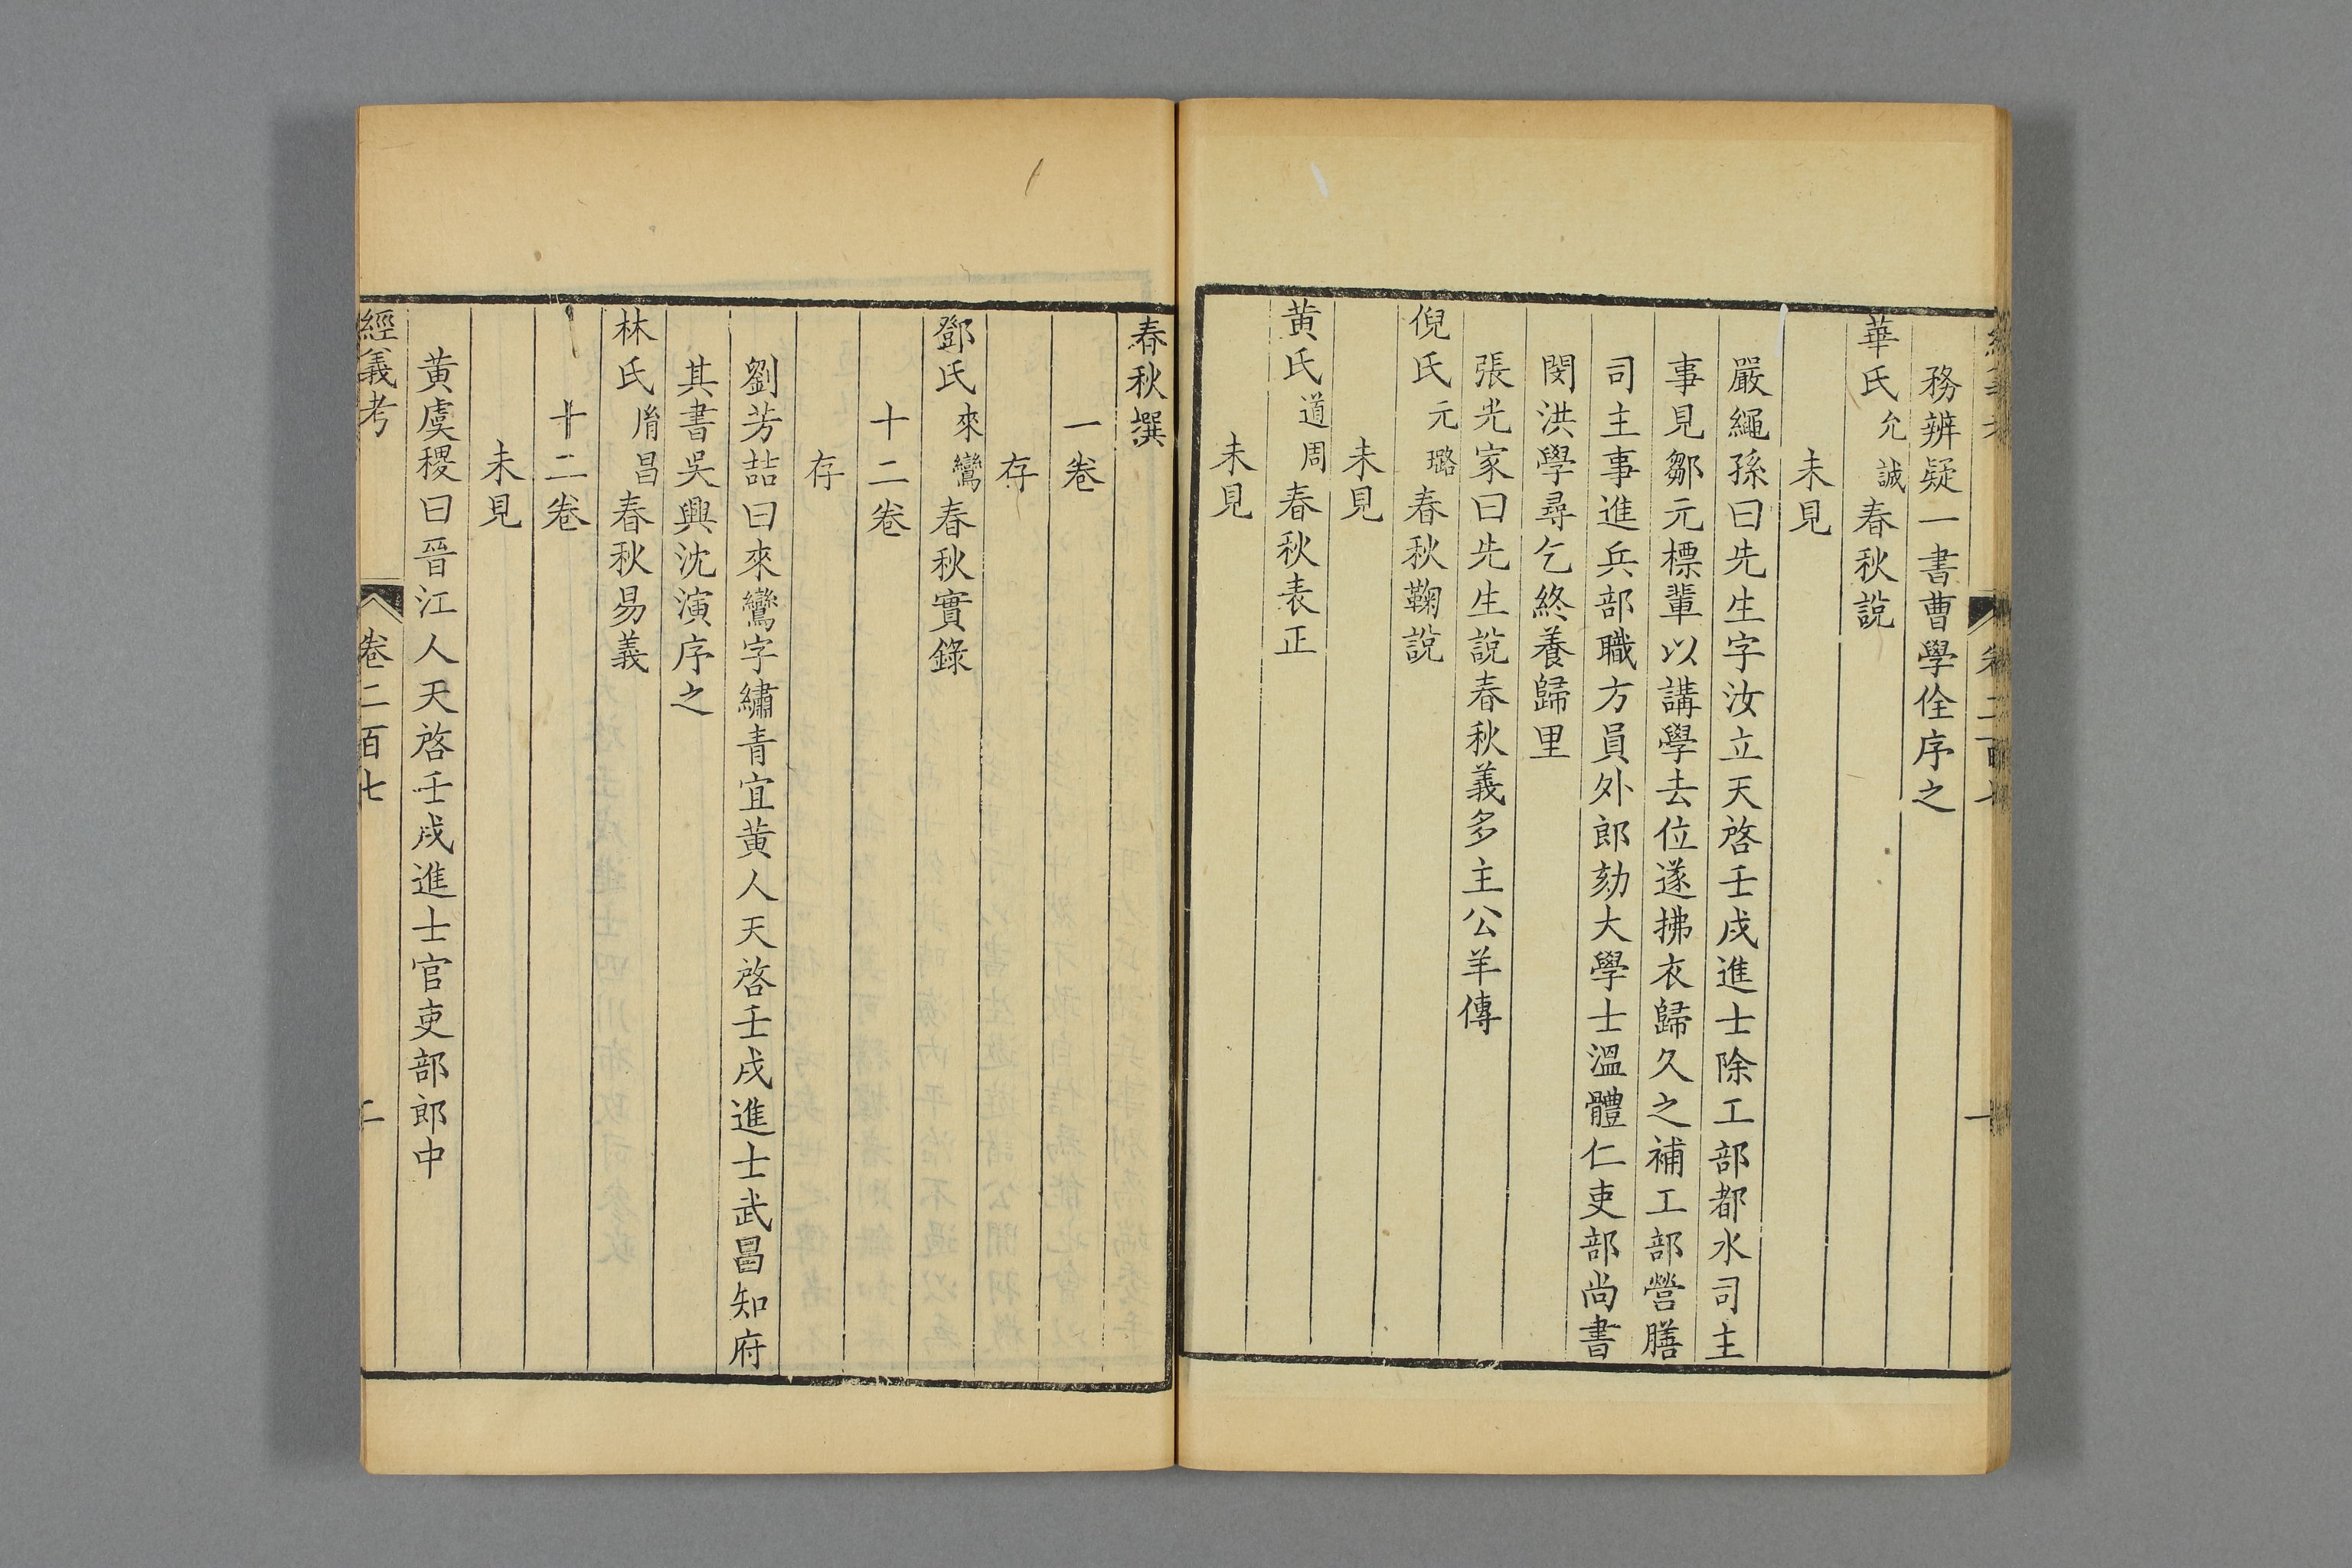 務辨疑一書曹學佺序之
華氏允誠春秋說
未見
嚴繩孫曰先生字汝立天啓壬戌進士除工部都水司主
事見鄒元標輩以講學去位遂拂衣歸久之補工部營膳
司主事進兵部職方員外郎劾大學士溫體仁吏部尚書
閔洪學尋乞終養歸里
張光家曰先生說春秋義多主公羊傳
倪氏元璐春秋鞠說
未見
黃氏道周春秋表正
未見
春秋撰
一卷
存
鄧氏來鸞春秋實錄
十二卷
存
劉芳喆曰來鸞字繡青宜黃人天啓壬戌進士武昌知府
其書吳興沈演序之
林氏胤昌春秋易義
十二卷
未見
黃虞稷曰晉江人天啓壬戌進士官吏部郎中
經義考 卷二百七 二